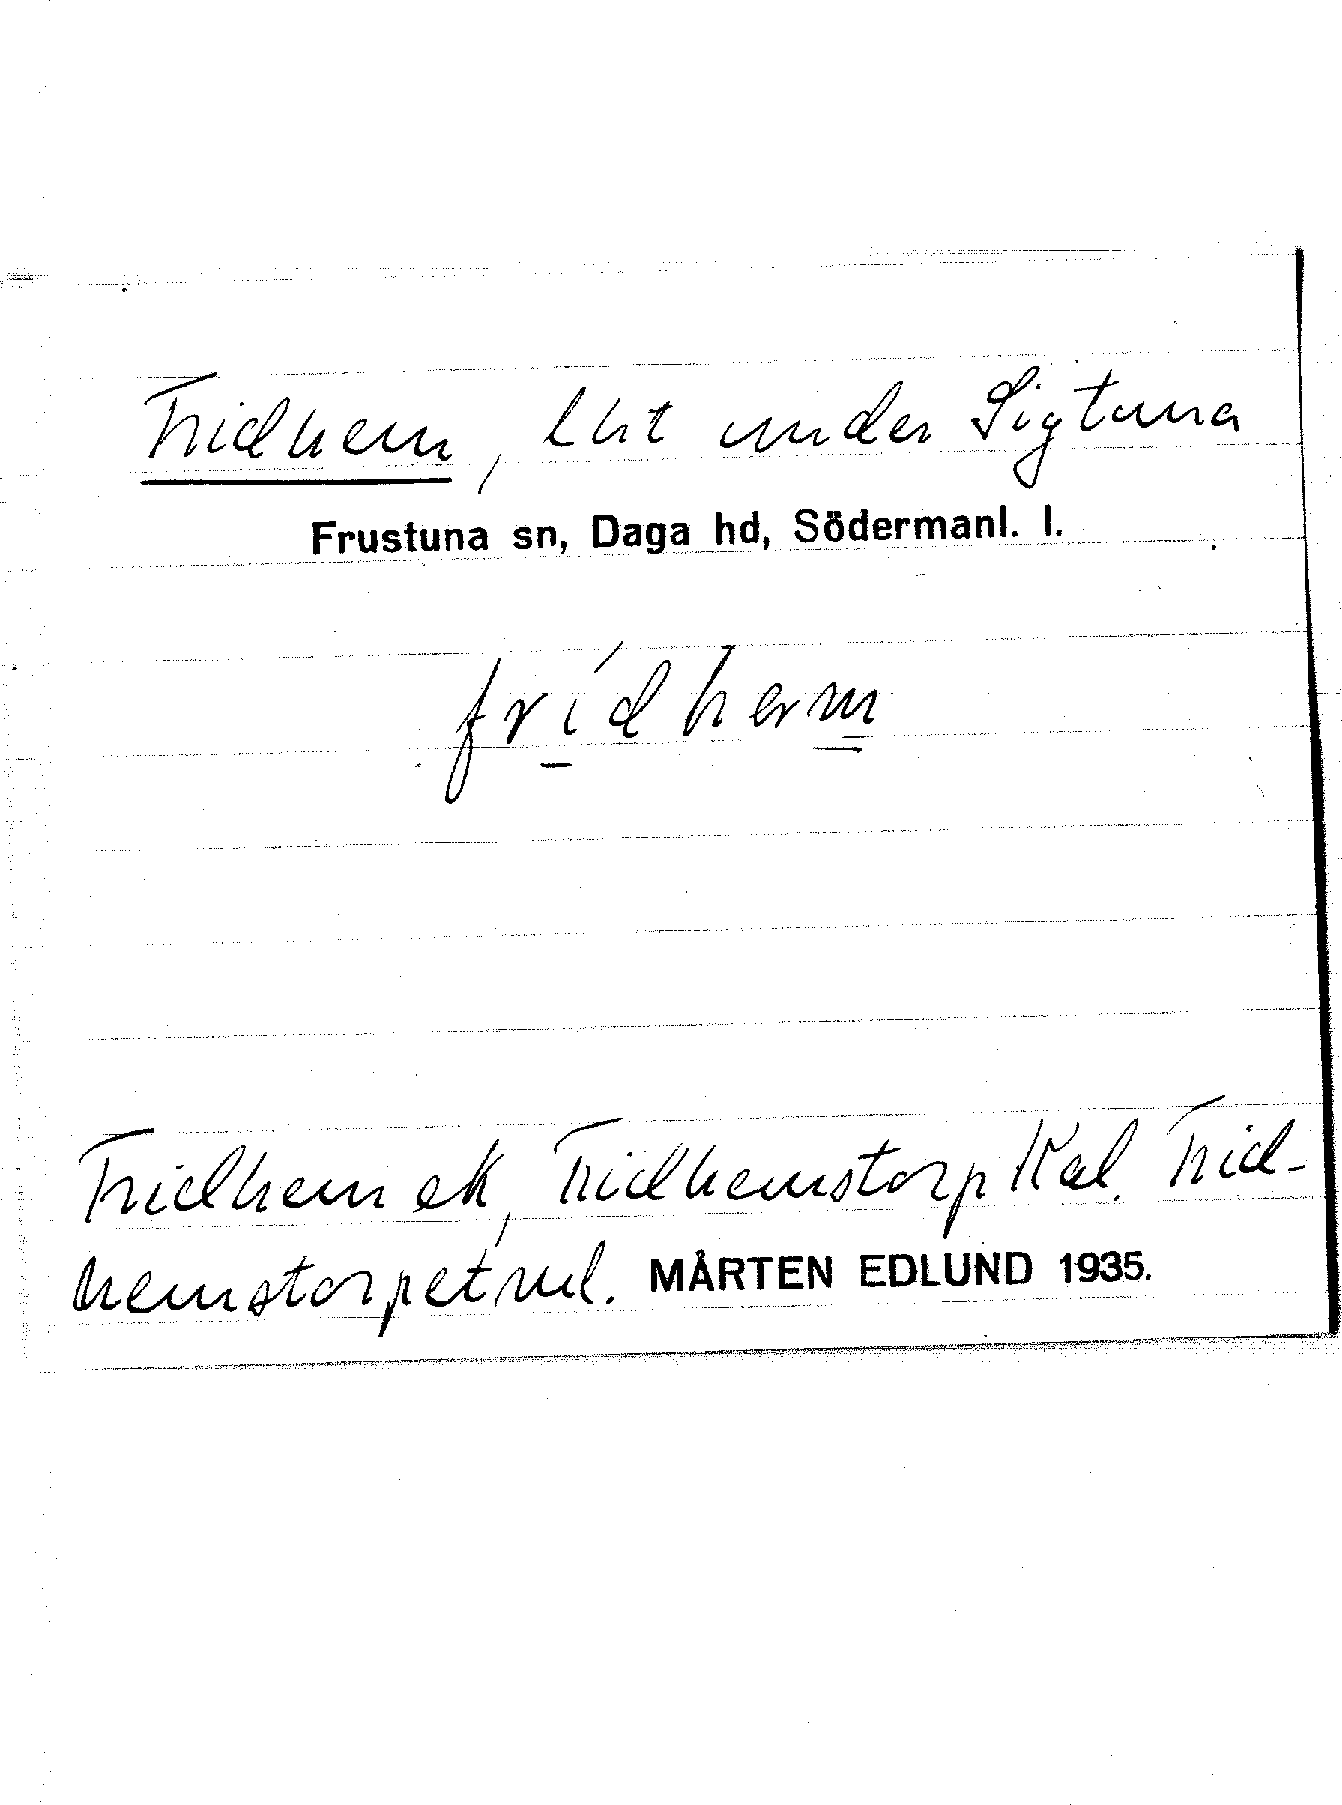 Fridhem, lht under Sigtuna
Frustuna sn, Daga hd, Södermanl. l.
frídhem
Fridhem ek, Fridhemstorp Kal. Frid-
hemstorpet rul. MÅRTEN EDLUND 1935.